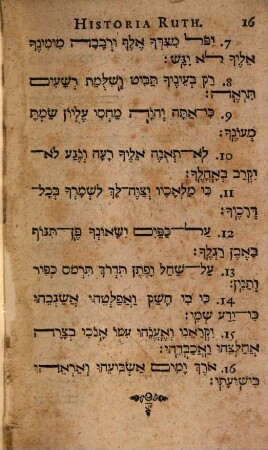 HISTORIA RUTH. 16
7. יִפֹּל מִצִּדְּךָ אֶלֶף וּרְבָבָה מִימִינֶךָ
אֵלֶיךָ לֹא יִגָּשׁ׃
8. רַק בְּעֵינֶיךָ תַבִּיט וְשִׁלֻּמַת רְשָׁעִים
תִּרְאֶה׃
9. כִּי־אַתָּה יְהוָה מַחְסִי עֶלְיוֹן שַׂמְתָּ
מְעוֹנֶךָ׃
10. לֹא־תְאֻנֶּה אֵלֶיךָ רָעָה וְנֶגַע לֹא־
יִקְרַב בְּאָהֳלֶךָ׃
11. כִּי מַלְאָכָיו יְצַוֶּה־לָּךְ לִשְׁמָרְךָ בְּכָל־
דְּרָכֶיךָ׃
12. עַל־כַּפַּיִם יִשָּׂאוּנְךָ פֶּן־תִּגּוֹף
בָּאֶבֶן רַגְלֶךָ׃
13. עַל־שַׁחַל וָפֶתֶן תִּדְרֹךְ תִּרְמֹס כְּפִיר
וְתַנִּין׃
14. כִּי בִי חָשַׁק וַאֲפַלְּטֵהוּ אֲשַׂגְּבֵהוּ
כִּי־יָדַע שְׁמִי׃
15. יִקְרָאֵנִי וְאֶעֱנֵהוּ עִמּוֹ אָנֹכִי בְצָרָה
אֲחַלְּצֵהוּ וַאֲכַבְּדֵהוּ׃
16. אֹרֶךְ יָמִים אַשְׂבִּיעֵהוּ וְאַרְאֵהוּ
בִּישׁוּעָתִי׃